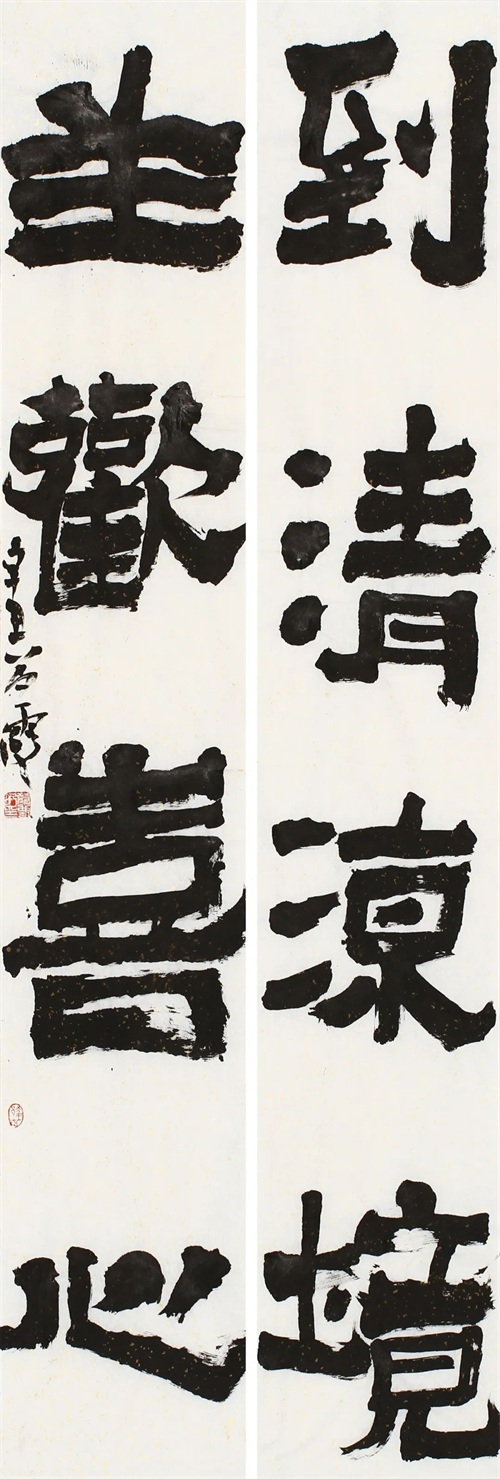 到清涼境
生歡喜心
辛丑